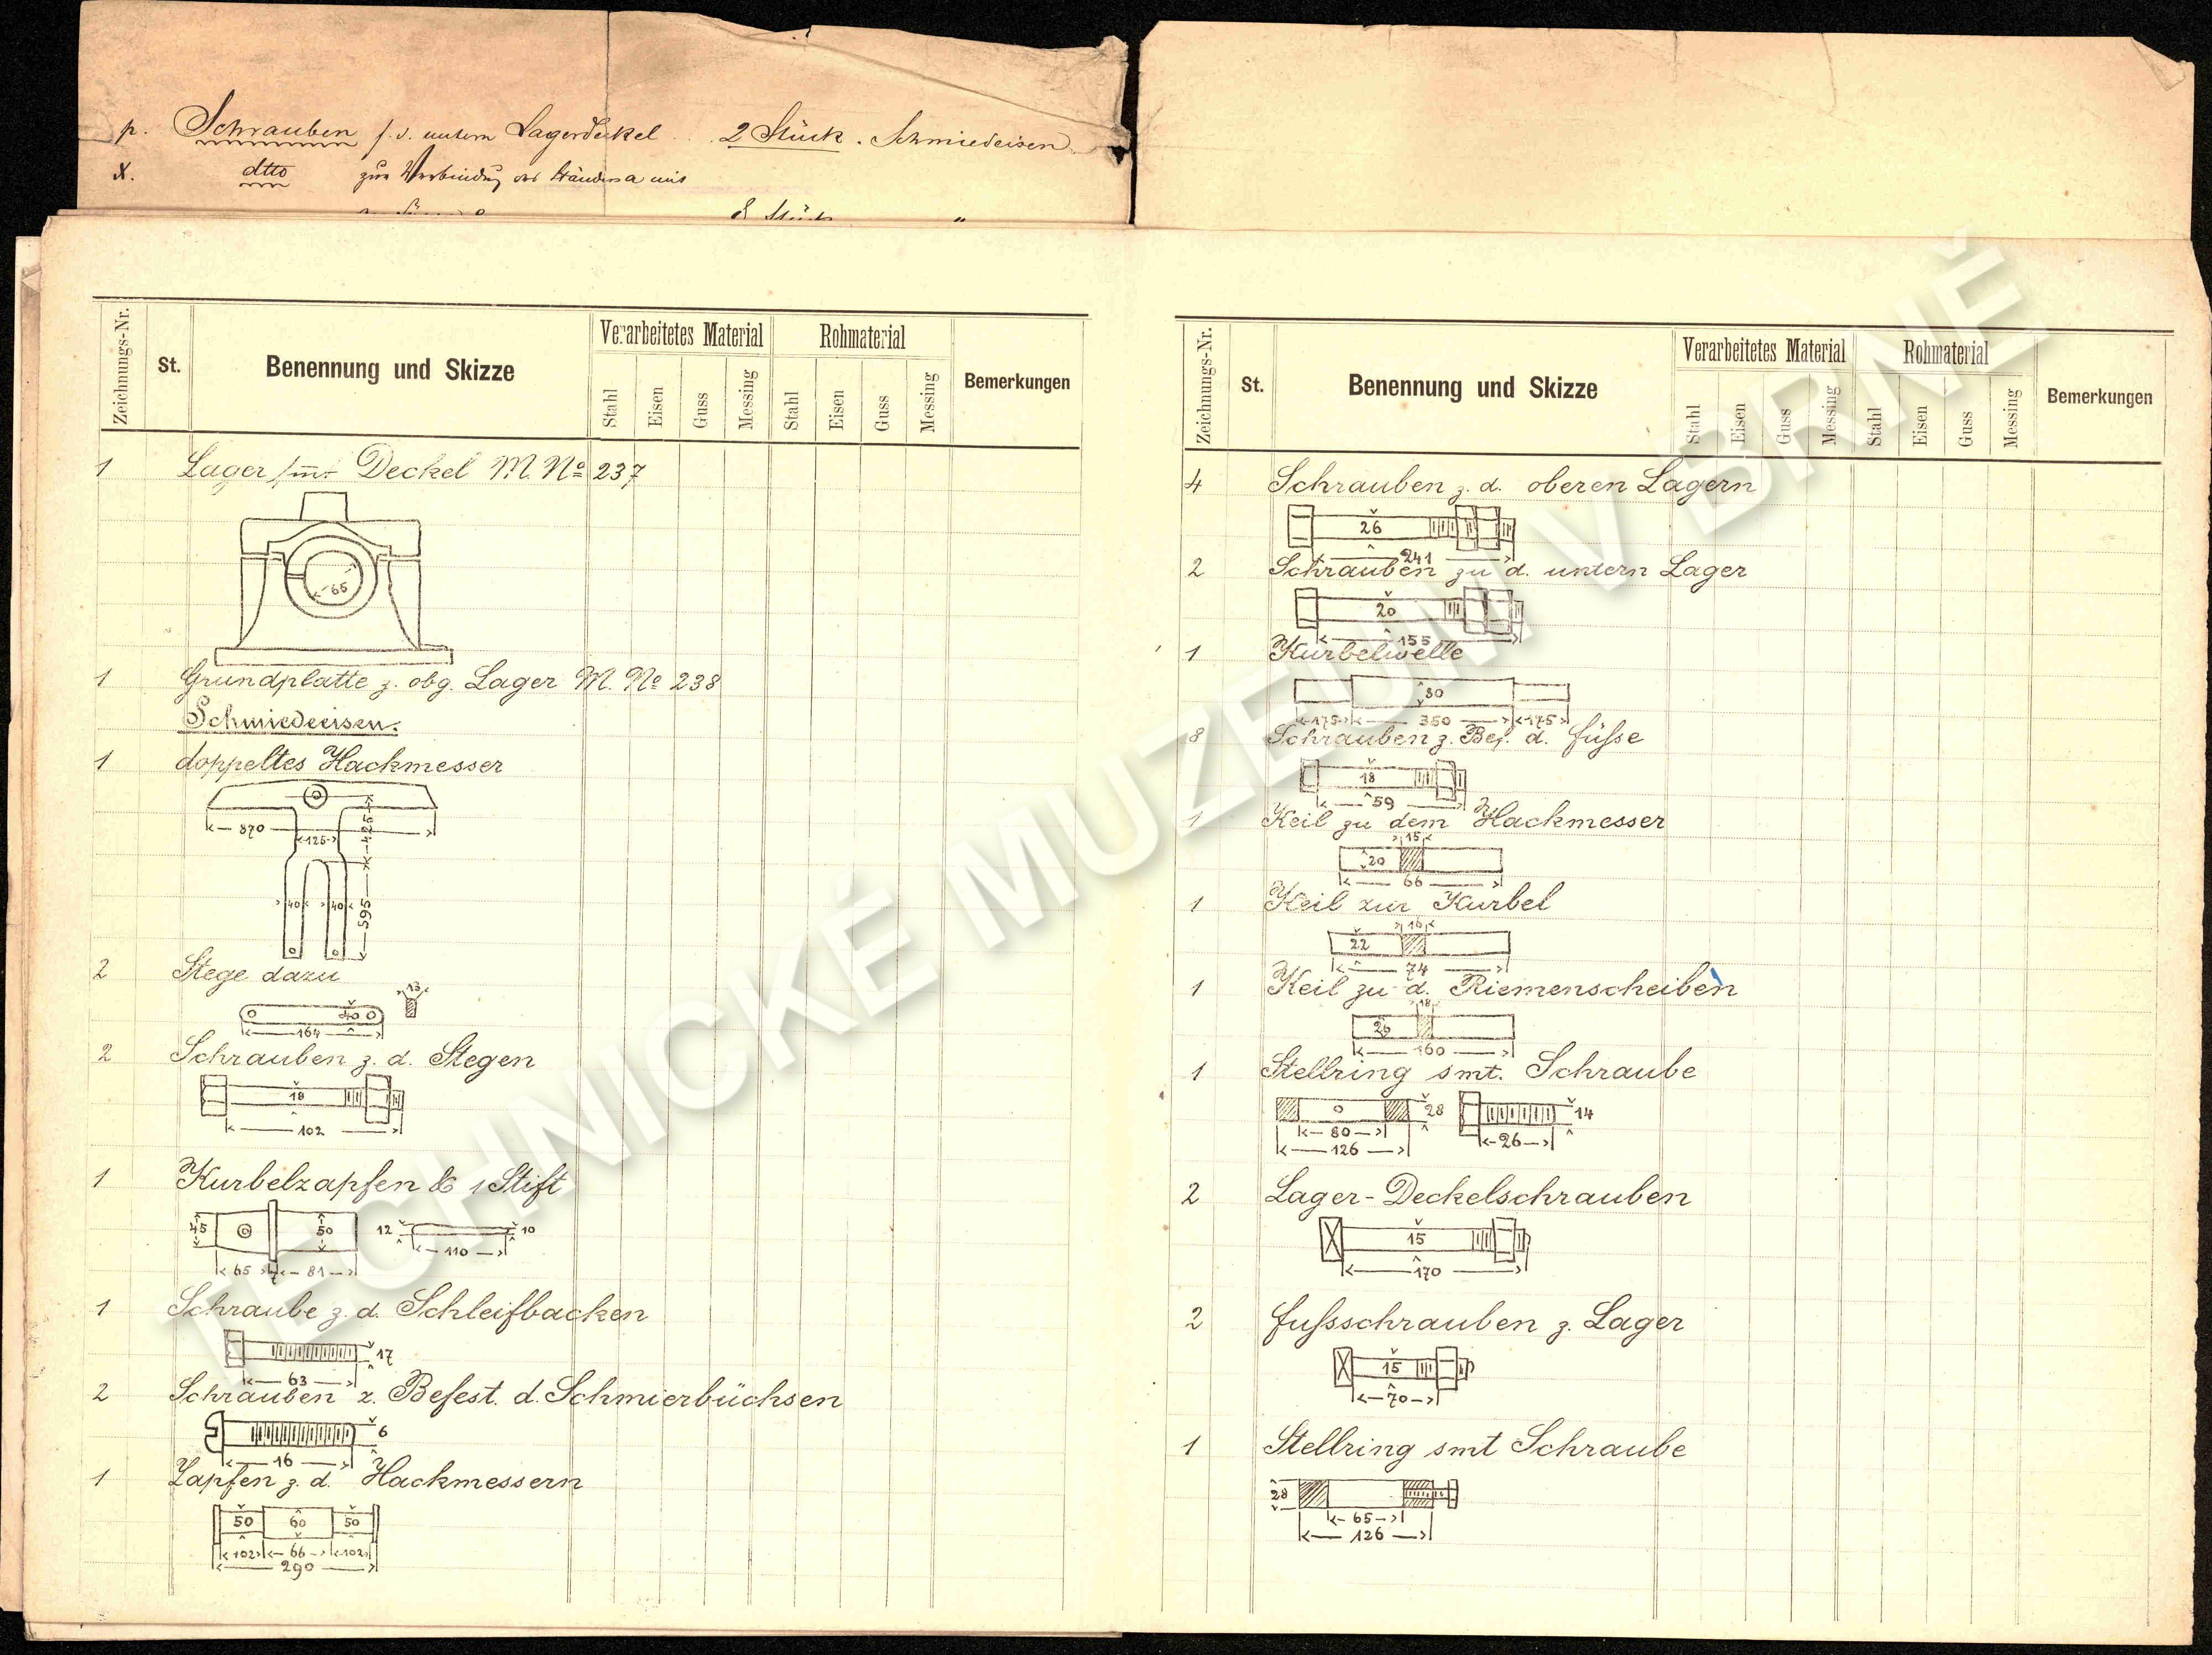 p. Schrauben f. d. untern Lagerdeckel .. 2 Stück. Schmiedeisen
X. dtto zur Verbindung des Ständers a mit
8 Stück "
Zeichnungs-Nr.
St.
Benennung und Skizze
Verarbeitetes Material
Rohmaterial
Bemerkungen
Stahl Eisen Guss Messing Stahl Eisen Guss Messing
1 Lager smt Deckel M. No 237
65
1 Grundplatte z. obg. Lager M. No 238
Schmiedeeisen.
1 doppeltes Hackmesser
870
125
425
40 40
595
2 Stege dazu
13
40
164
2 Schrauben z. d. Stegen
18
102
1 Kurbelzapfen & 1 Stift
45 50 12 10
65 7 81 110
1 Schraube z. d. Schleifbacken
17
63
2 Schrauben z. Befest. d. Schmierbüchsen
6
16
1 Zapfen z. d. Hackmessern
50 60 50
102 66 102
290
Zeichnungs-Nr.
St.
Benennung und Skizze
Verarbeitetes Material
Rohmaterial
Bemerkungen
Stahl Eisen Guss Messing Stahl Eisen Guss Messing
4 Schrauben z. d. oberen Lagern
26
241
2 Schrauben zu d. untern Lager
20
155
1 Kurbelwelle
80
175 350 175
8 Schrauben z. Bef. d. Füsse
18
59
1 Keil zu dem Hackmesser
15
20
66
1 Keil zur Kurbel
16
22
74
1 Keil zu d. Riemenscheiben
18
26
160
1 Stellring smt. Schraube
28 14
80 26
126
2 Lager-Deckelschrauben
15
170
2 Fussschrauben z. Lager
15
70
1 Stellring smt Schraube
28
65
126
TECHNICKÉ MUZEUM V BRNĚ